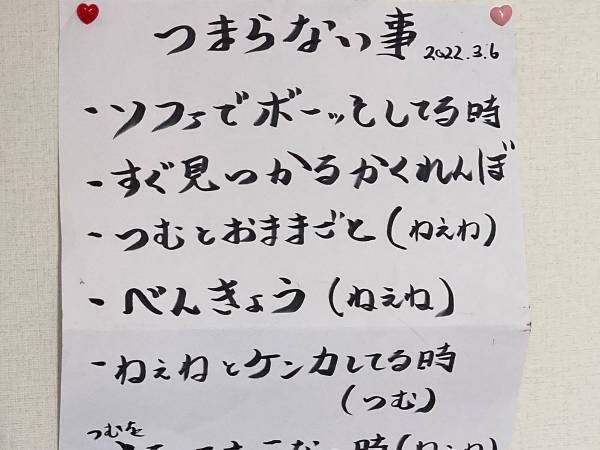 つまらない事
2022.3.6
-ソファでボーッとしてる時
-すぐ見つかるかくれんぼ
-つむとおままごと(ねぇね)
-べんきょう(ねぇね)
-ねぇねとケンカしてる時
(つむ)
つむを